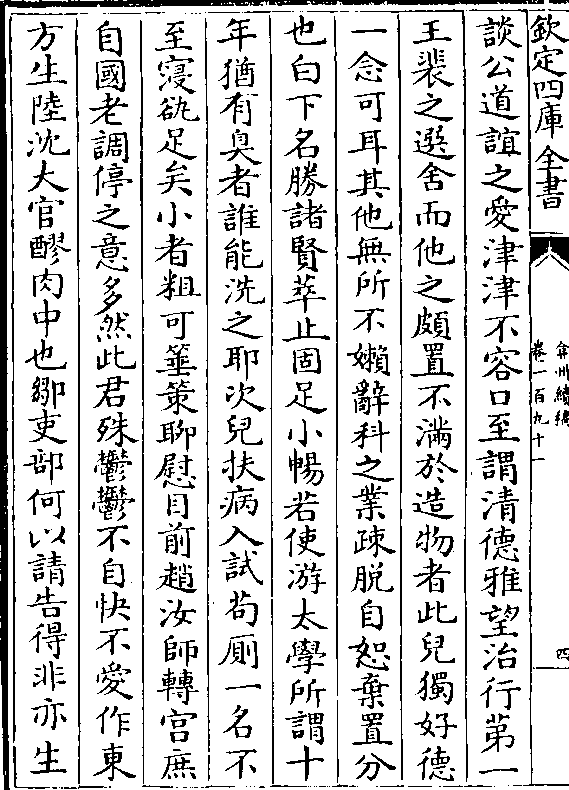 欽定四庫全書
弇州續稿
卷一百九十一
四
談公道誼之愛津津不容口至謂清德雅望治行第一
王裴之選舍而他之頗置不滿於造物者此兒獨好德
一念可耳其他無所不嬾辭科之業疎脱自恕棄置分
也白下名勝諸賢萃止固足小暢若使游太學所謂十
年猶有臭者誰能洗之耶次兒扶病入試茍厠一名不
至寢欿足矣小者粗可箠策聊慰目前趙汝師轉宫庶
自國老調停之意多然此君殊鬱鬱不自快不愛作東
方生陸沈大官醪肉中也鄒吏部何以請告得非亦生